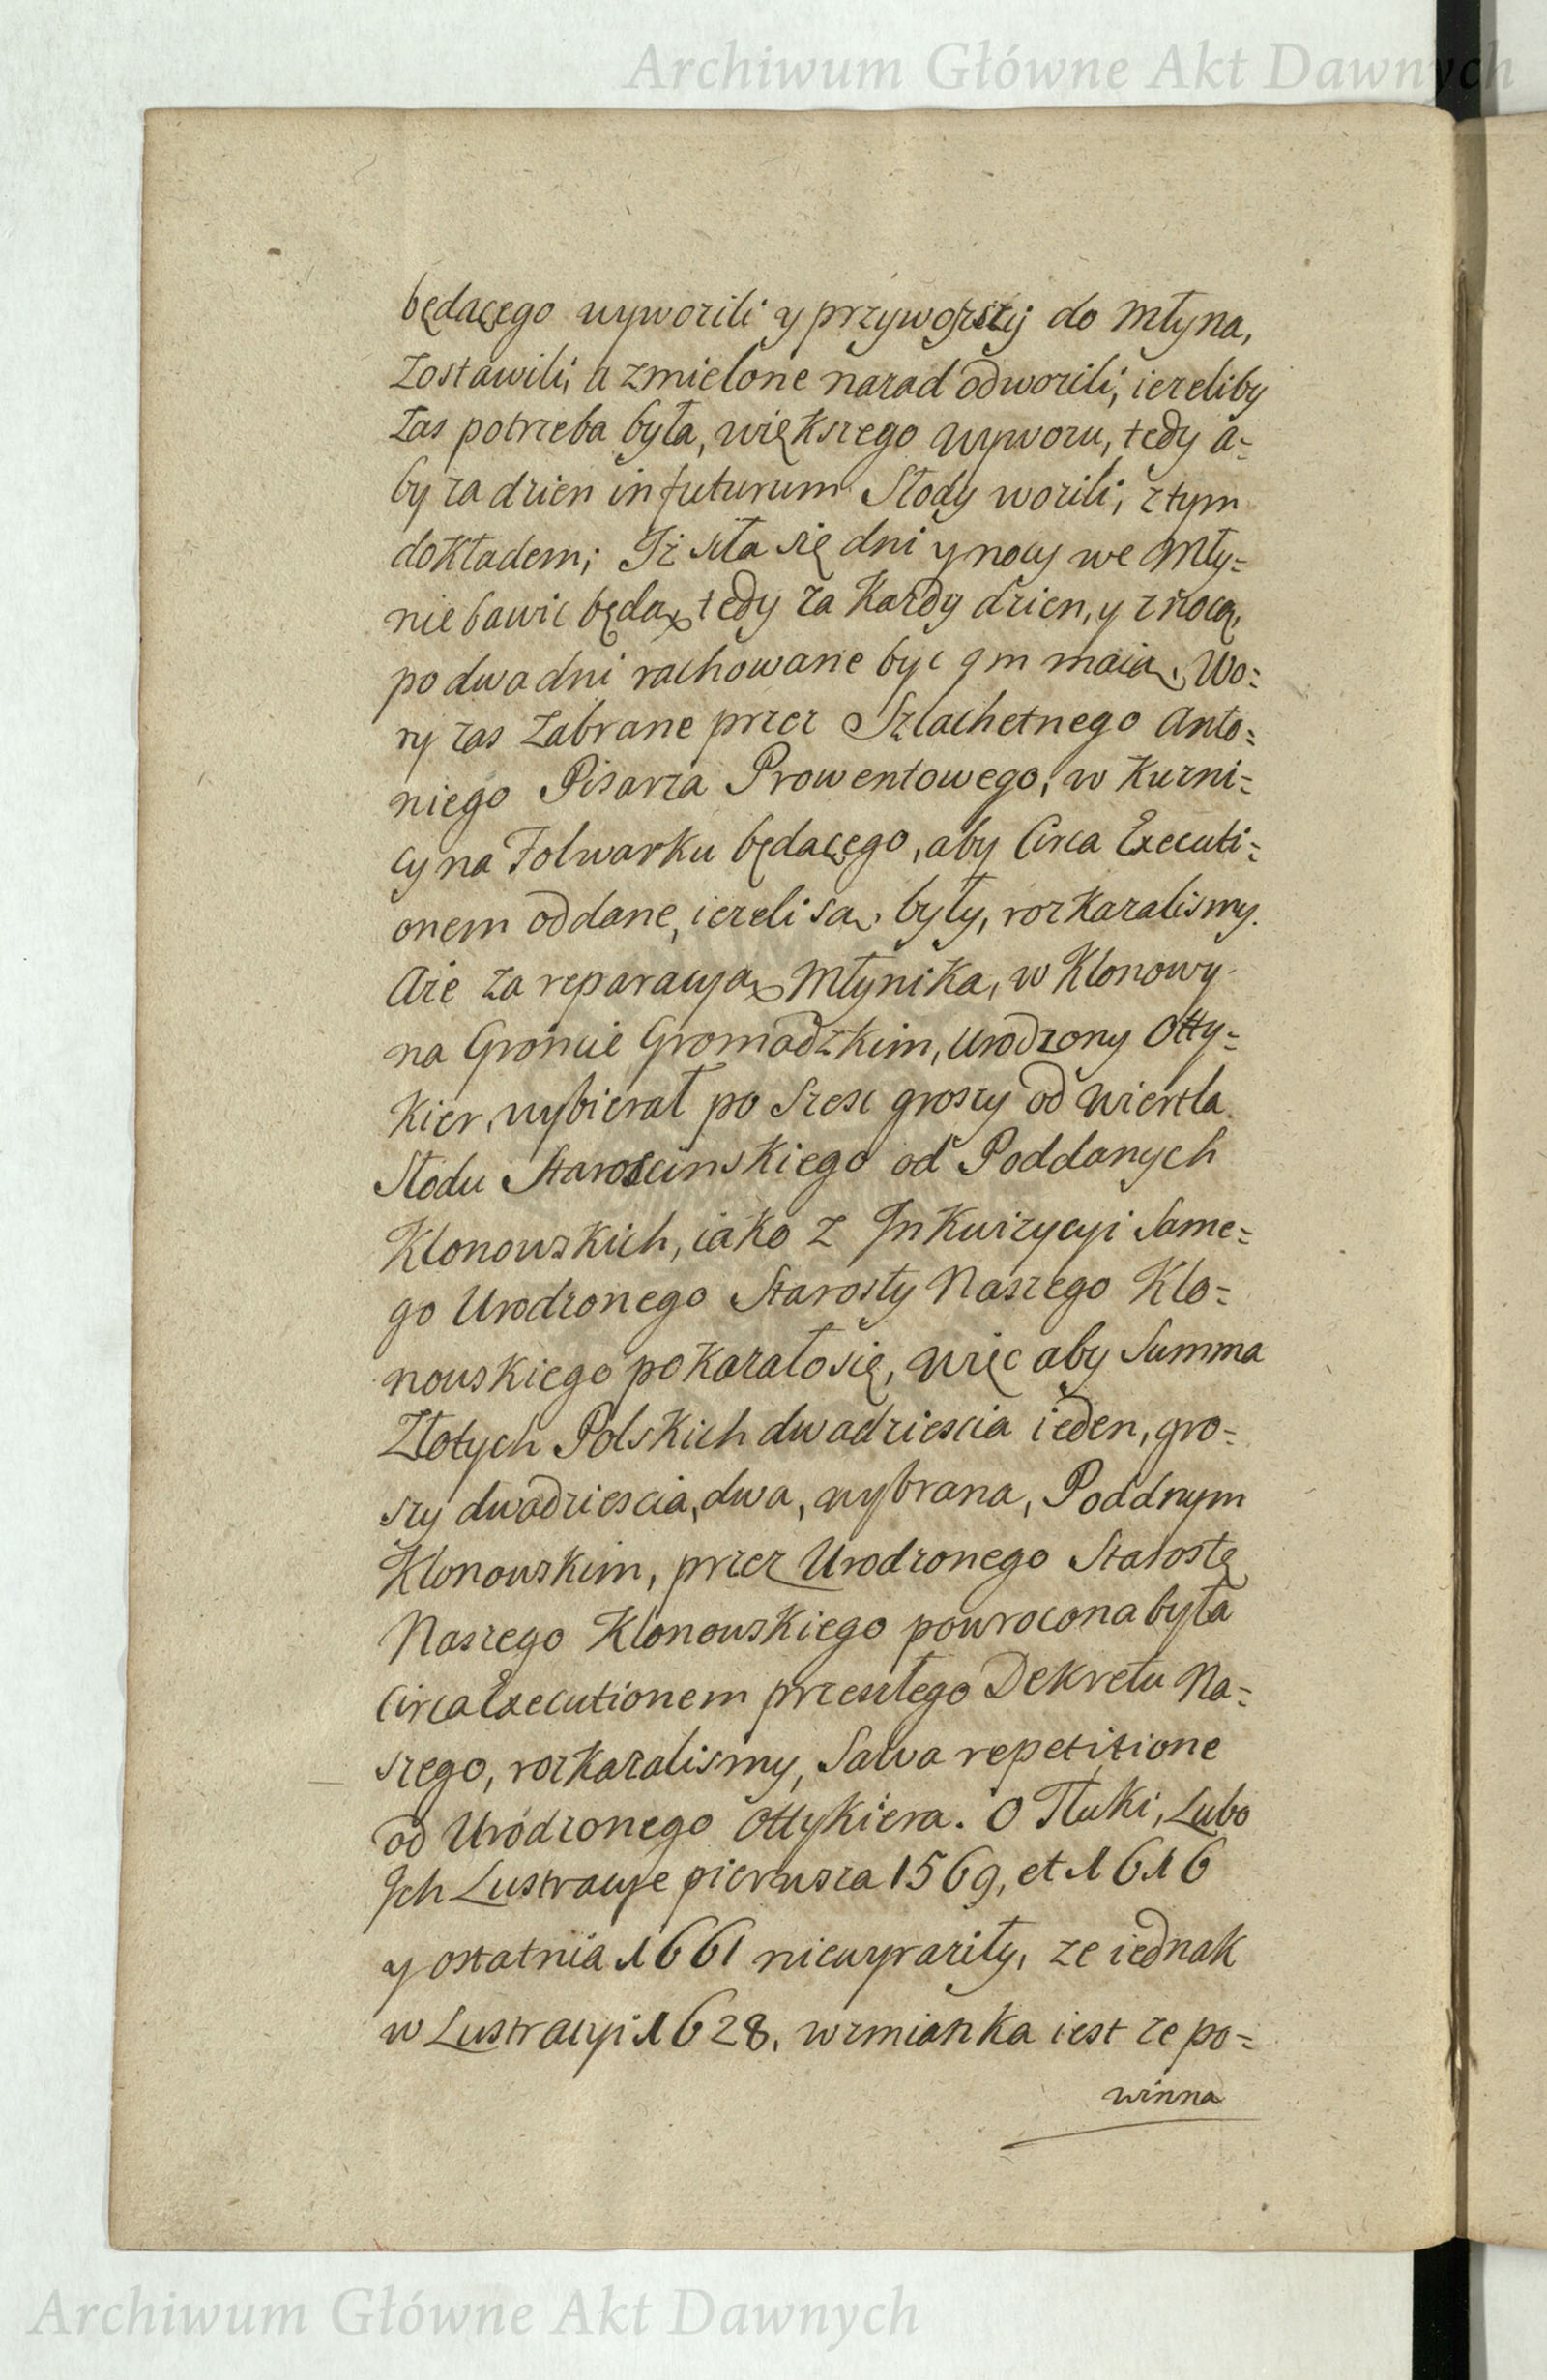 Archiwum Główne Akt Dawnych
będącego wywozili y przywozszy do Młyna,
Zostawili, a zmielone nazad odwozili, iezeliby
Zas potrzeba była, większego wywozu, tedy a=
by za dzien in futurum Słody wozili, z tym
dokładem; Iz siła się dni y nocy we Mły=
nie bawic będą, tedy za Kazdy dzien, y z nocą,
po dwa dni rachowane byc ym maią, Wo=
ry zas Zabrane przez Szlachetnego Anto=
niego Pisarza Prowentowego, w Kurni=
cy na Folwarku będącego, aby Circa Executi=
onem oddane, iezeli są, były, rozkazalismy.
Aze za reparacyą Młynika, w Klonowy
na Groncie Gromadzkim, Urodzony Otty=
Kier, wybierał po Szesc groszy od Wiertla
Słodu Staroscinskiego od Poddanych
Klonowskich, iako z InKwizycyi Same=
go Urodzonego Starosty Naszego Klo=
nowskiego pokazało się, Więc aby Summa
Złotych Polskich dwadziescia ieden, gro=
szy dwadziescia, dwa, wybrana, Poddnym
Klonowskim, przez Urodzonego Starostę
Naszego Klonowskiego powrocona była
Circa Executionem przeszłego Dekretu Na=
szego, rozkazalismy, Salva repetitione
od Urodzonego Ottykiera. O Tłuki, Lubo
Ich Lustracye pierwsza 1569, et 1616
y ostatnia 1661 niewyraziły, ze iednak
w Lustracyi 1628. wzmianka iest ze po=
winna
Archiwum Główne Akt Dawnych